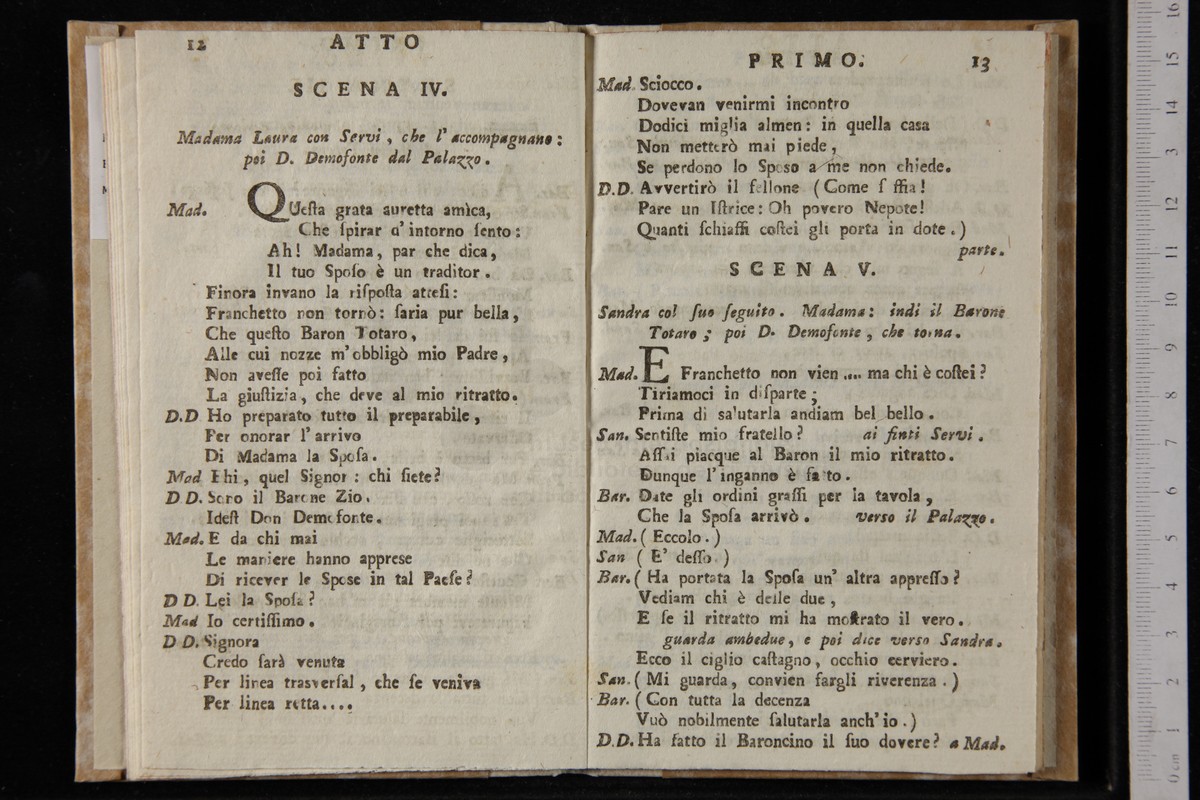 12
ATTO
SCENA IV.
Madama Laura con Servi, che l'accompagnano:
poi D. Demofonte dal Palazzo.
Mad. QUeſta grata auretta amica,
Che ſpirar d'intorno ſento:
Ah! Madama, par che dica,
Il tuo Spoſo è un traditor.
Finora invano la riſpoſta atteſi:
Franchetto non tornò: ſaria pur bella,
Che queſto Baron Totaro,
Alle cui nozze m'obbligò mio Padre,
Non aveſſe poi fatto
La giuſtizia, che deve al mio ritratto.
D.D Ho preparato tutto il preparabile,
Per onorar l'arrivo
Di Madama la Spoſa.
Mad Ehi, quel Signor: chi ſiete?
D D. Sono il Barone Zio.
Ideſt Don Demofonte.
Mad. E da chi mai
Le maniere hanno appreſe
Di ricever le Spoſe in tal Paeſe?
D D. Lei la Spoſa?
Mad Io certiſſimo.
D D. Signora
Credo ſarà venuta
Per linea traſverſal, che ſe veniva
Per linea retta....
PRIMO.
13
Mad. Sciocco.
Dovevan venirmi incontro
Dodici miglia almen: in quella caſa
Non metterò mai piede,
Se perdono lo Spoſo a me non chiede.
D.D. Avvertirò il fellone (Come ſ ffia!
Pare un Iſtrice: Oh povero Nepote!
Quanti ſchiaffi coſtei gli porta in dote.)
parte.
SCENA V.
Sandra col ſuo ſeguito. Madama: indi il Barone
Totaro; poi D. Demofonte, che torna.
Mad. E Franchetto non vien .... ma chi è coſtei?
Tiriamoci in diſparte;
Prima di salutarla andiam bel bello.
San. Sentiſte mio fratello? ai finti Servi.
Aſſai piacque al Baron il mio ritratto.
Dunque l'inganno è fatto.
Bar. Date gli ordini graſſi per la tavola,
Che la Spoſa arrivò. verſo il Palazzo.
Mad. (Eccolo.)
San (E' deſſo.)
Bar. (Ha portata la Spoſa un' altra appreſſo?
Vediam chi è delle due,
E ſe il ritratto mi ha moſtrato il vero.
guarda ambedue, e poi dice verſo Sandra.
Ecco il ciglio caſtagno, occhio cerviero.
San. (Mi guarda, convien fargli riverenza.)
Bar. (Con tutta la decenza
Vuò nobilmente ſalutarla anch'io.)
D.D. Ha fatto il Baroncino il ſuo dovere? a Mad.